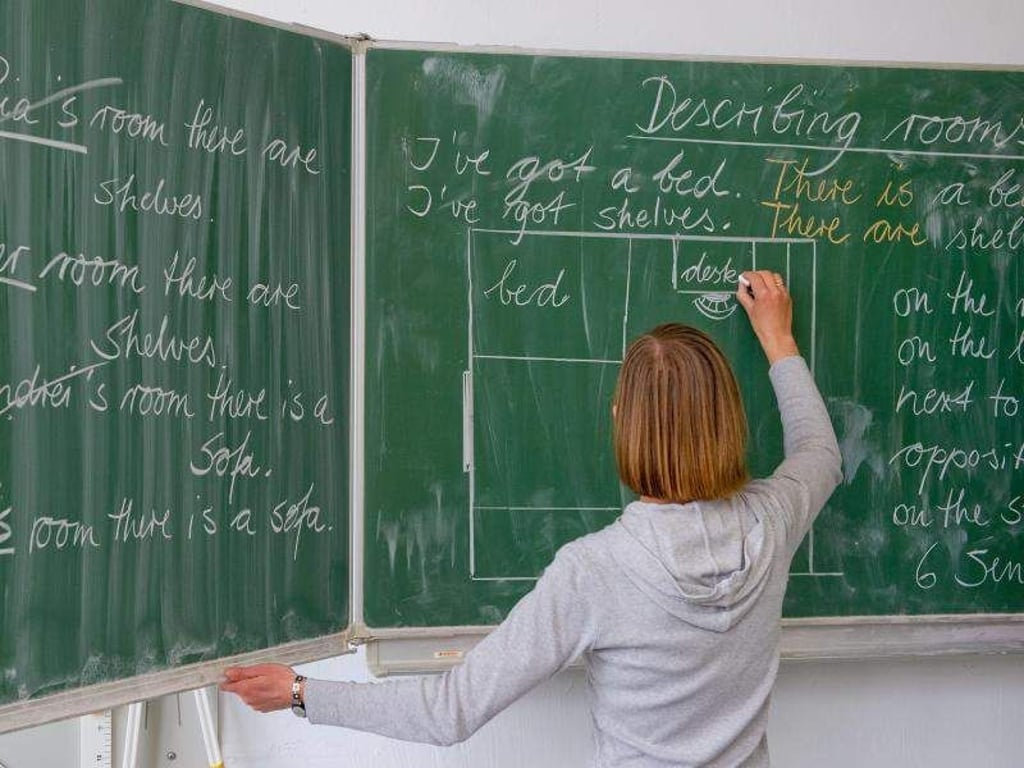 room there are
shelves.
room there are
Shelves.
room there is a
Sofa.
room there is a sofa.
Describing rooms
I've got a bed. There is a
I've got shelves. There are
bed
desk
on the
on the
next to
on the
6